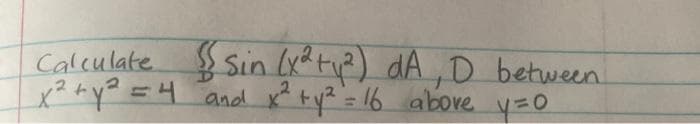 Calculate ∬_D sin (x²+y²) dA , D between
x²+y² = 4 and x²+y² = 16 above y=0